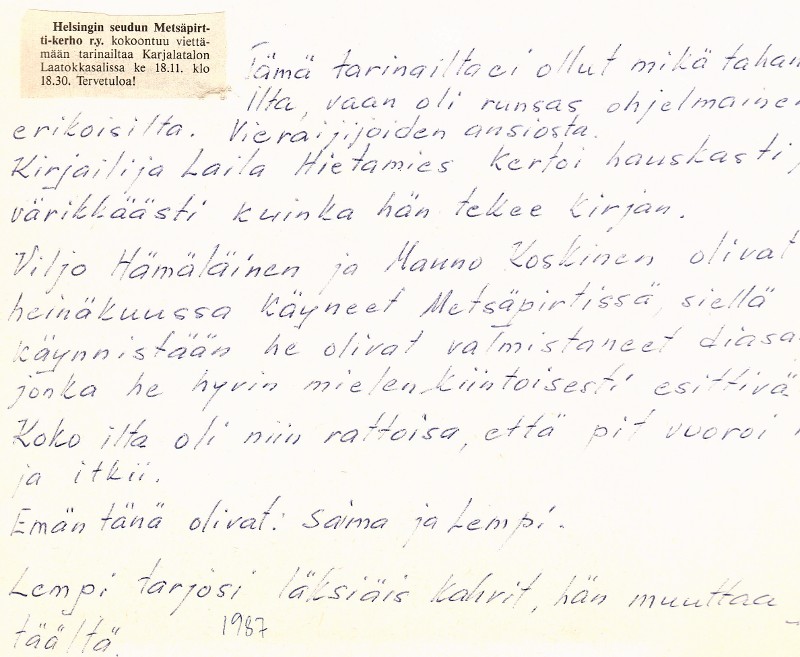 Helsingin seudun Metsäpirt-
ti-kerho r.y. kokoontuu viettä-
mään tarinailtaa Karjalatalon
Laatokkasalissa ke 18.11. klo
18.30. Tervetuloa!
Tämä tarinailta ei ollut mikä tahan
ilta, vaan oli runsas ohjelmainen
erikoisilta. Vieraijijoiden ansiosta.
Kirjailija Laila Hietamies kertoi hauskasti,
värikkäästi kuinka hän tekee kirjan.
Viljo Hämäläinen ja Mauno Koskinen olivat
heinäkuussa käyneet Metsäpirtissä, siellä
käynnistään he olivat valmistaneet diasa
jonka he hyvin mielenkiintoisesti esittivä
Koko ilta oli niin rattoisa, että pit vuoroi
ja itkii.
Emäntänä olivat: Saima ja Lempi.
Lempi tarjosi läksiäis kahvit, hän muuttaa
täältä.
1987